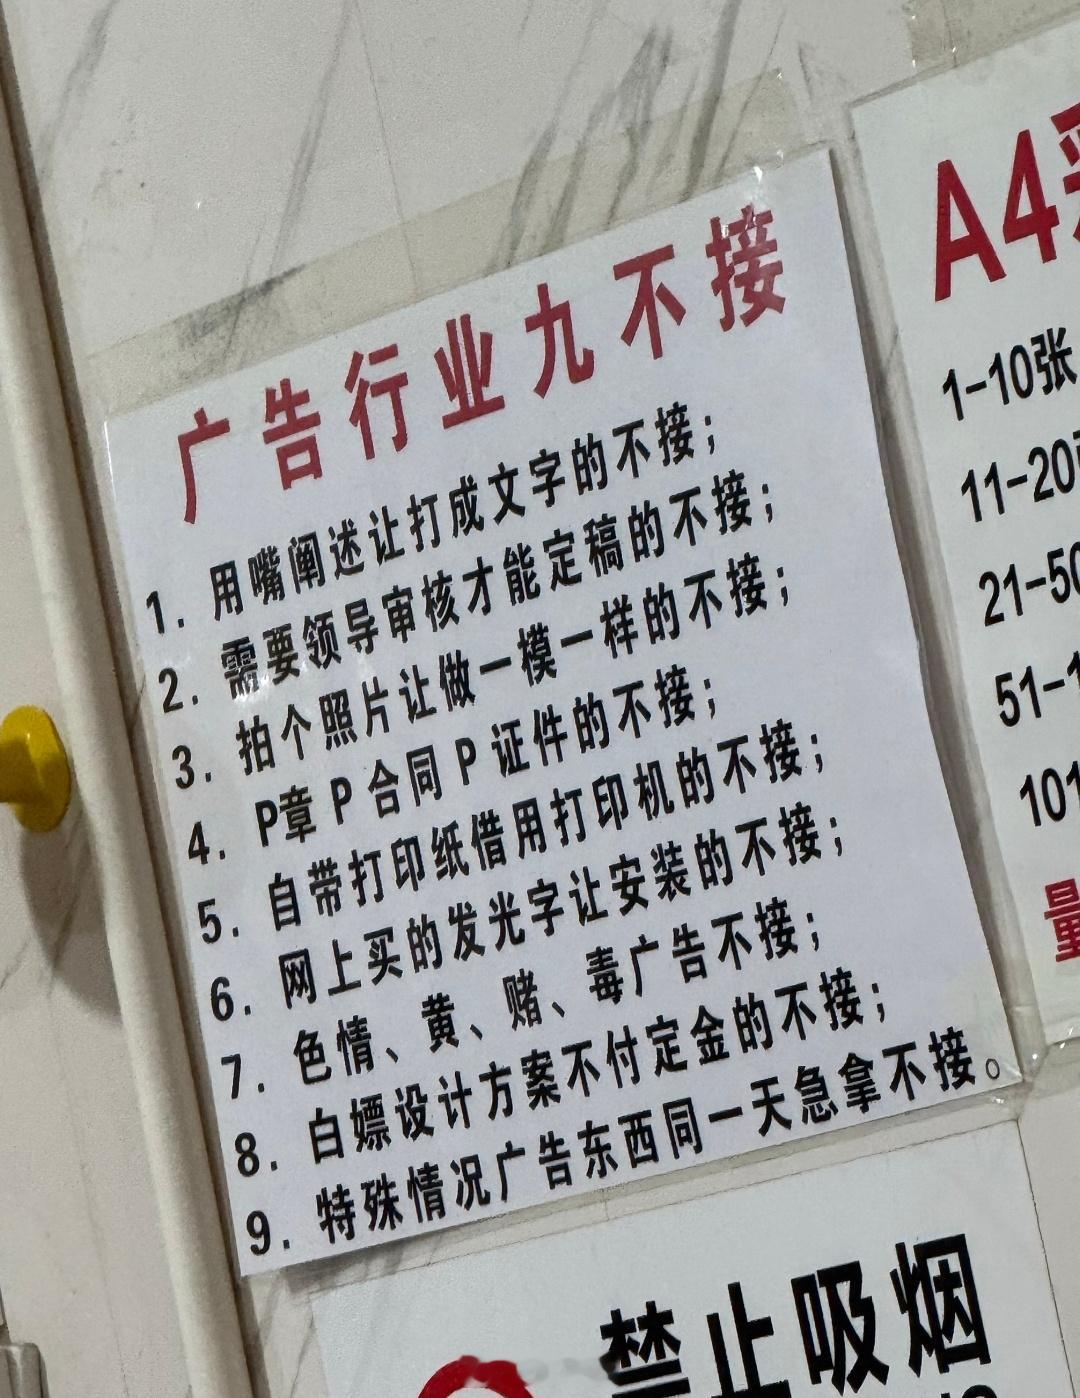 广告行业九不接
1. 用嘴阐述让打成文字的不接；
2. 需要领导审核才能定稿的不接；
3. 拍个照片让做一模一样的不接；
4. P章 P 合同 P 证件的不接；
5. 自带打印纸借用打印机的不接；
6. 网上买的发光字让安装的不接；
7. 色情、黄、赌、毒广告不接；
8. 白嫖设计方案不付定金的不接；
9. 特殊情况广告东西同一天急拿不接。
A4
1-10张
11-20
21-50
51-1
101
量
禁止吸烟